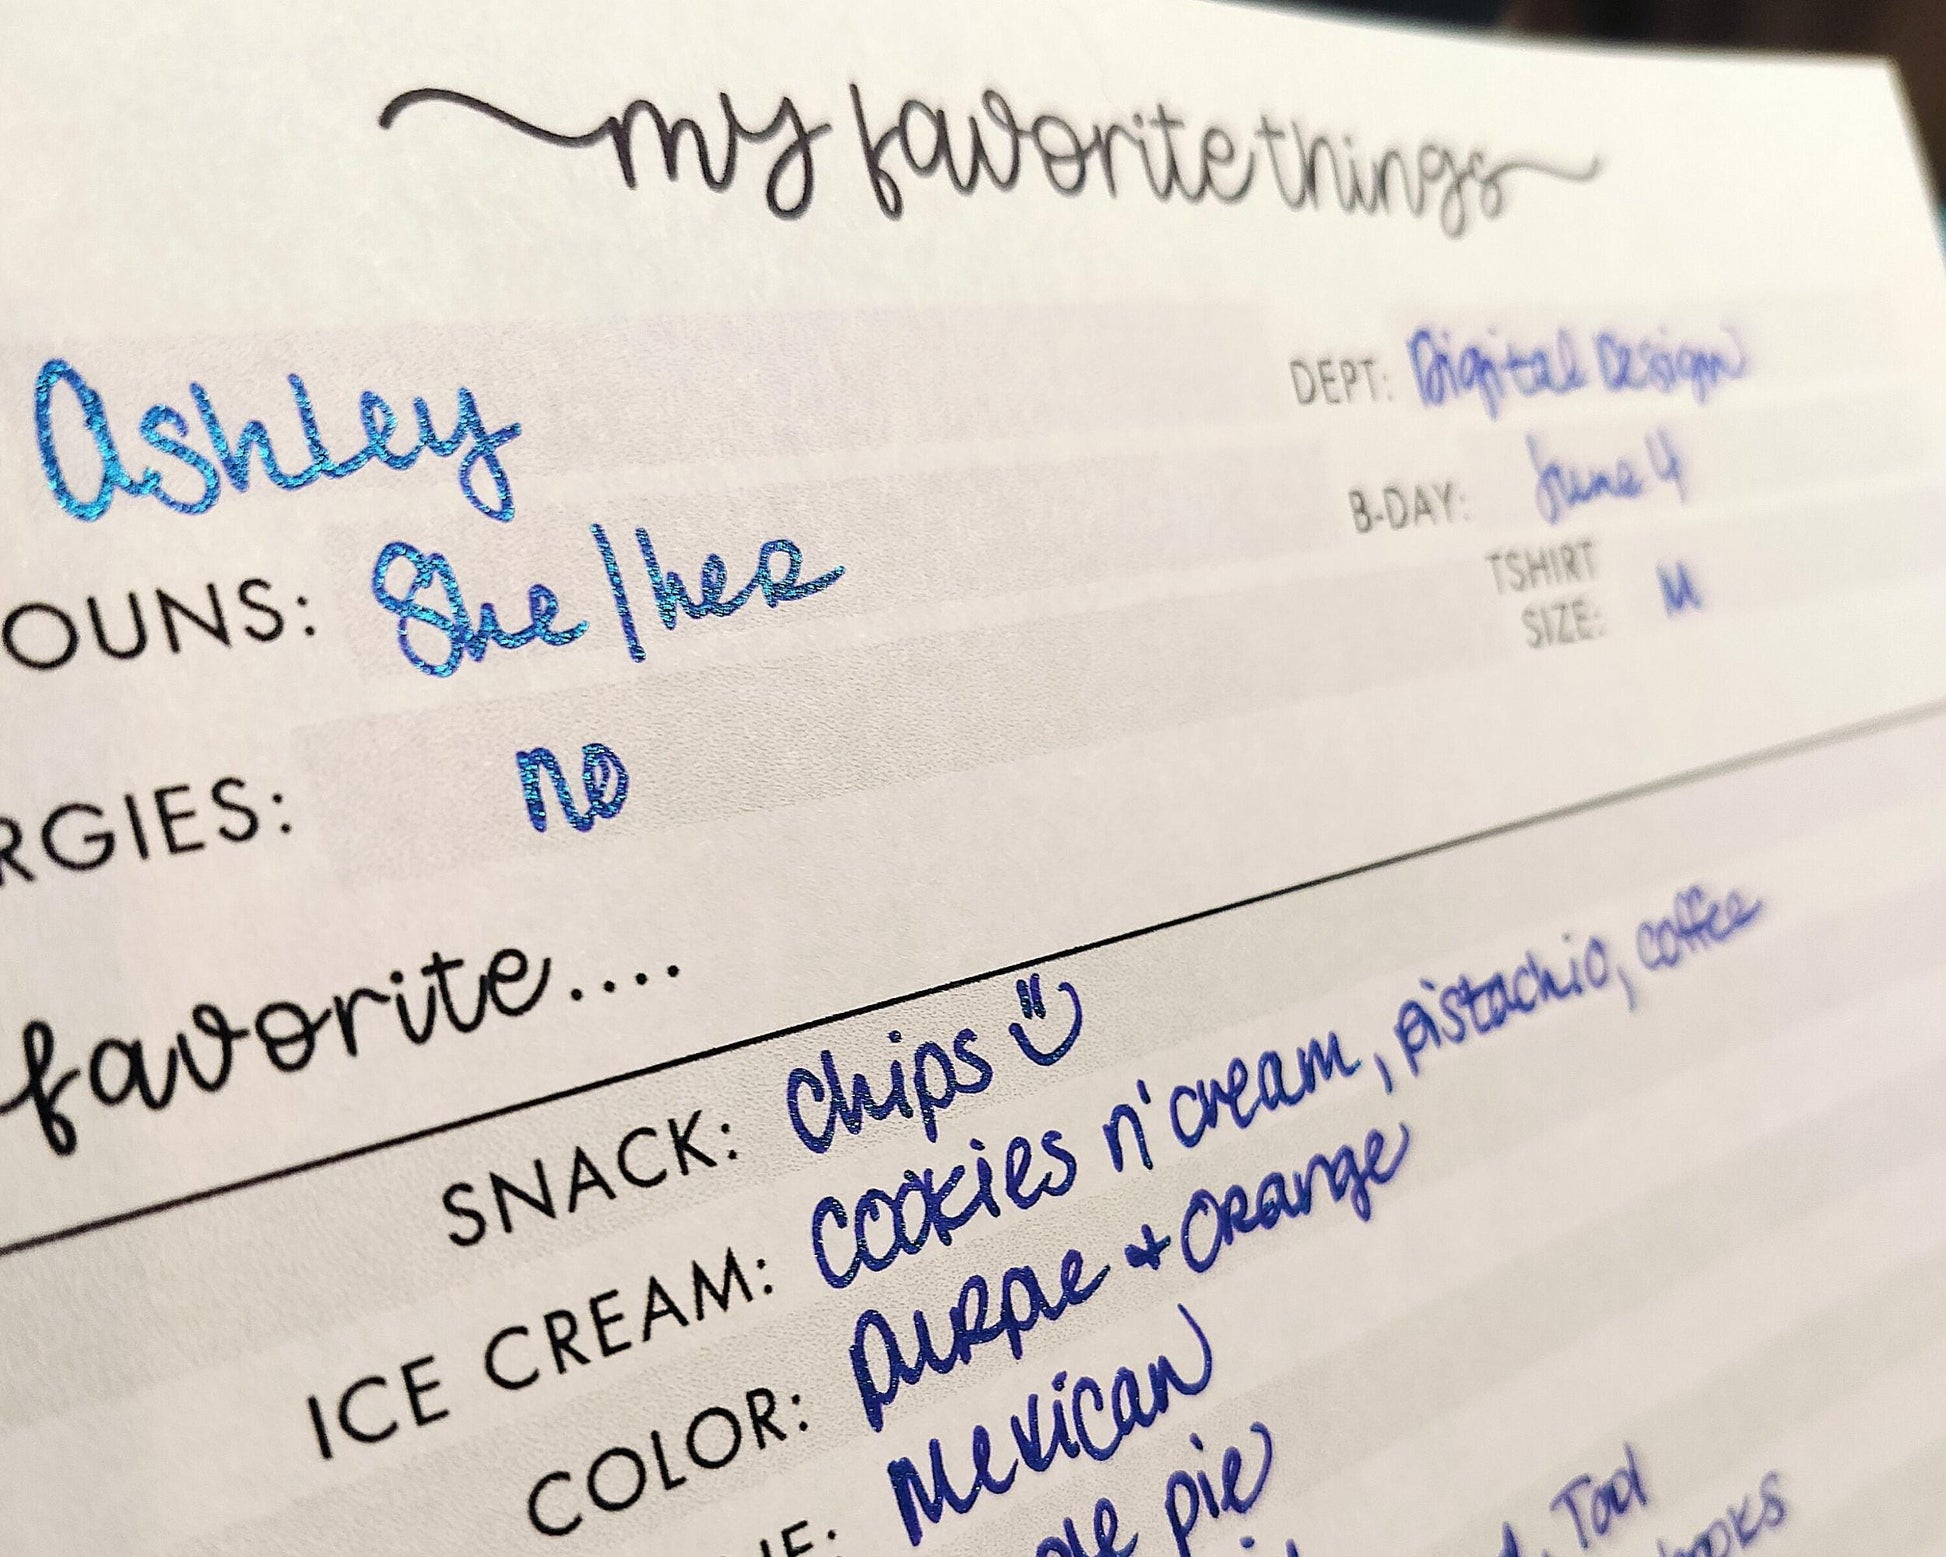 my favorite things
Ashley
DEPT: Digital Design
OUNS: She/her
B-DAY: June 4
TSHIRT
SIZE: M
RGIES: no
favorite....
SNACK: Chips
ICE CREAM: Cookies n' cream, pistachio, coffee
COLOR: Purple + Orange
NE: Mexican
pie
Tool
books